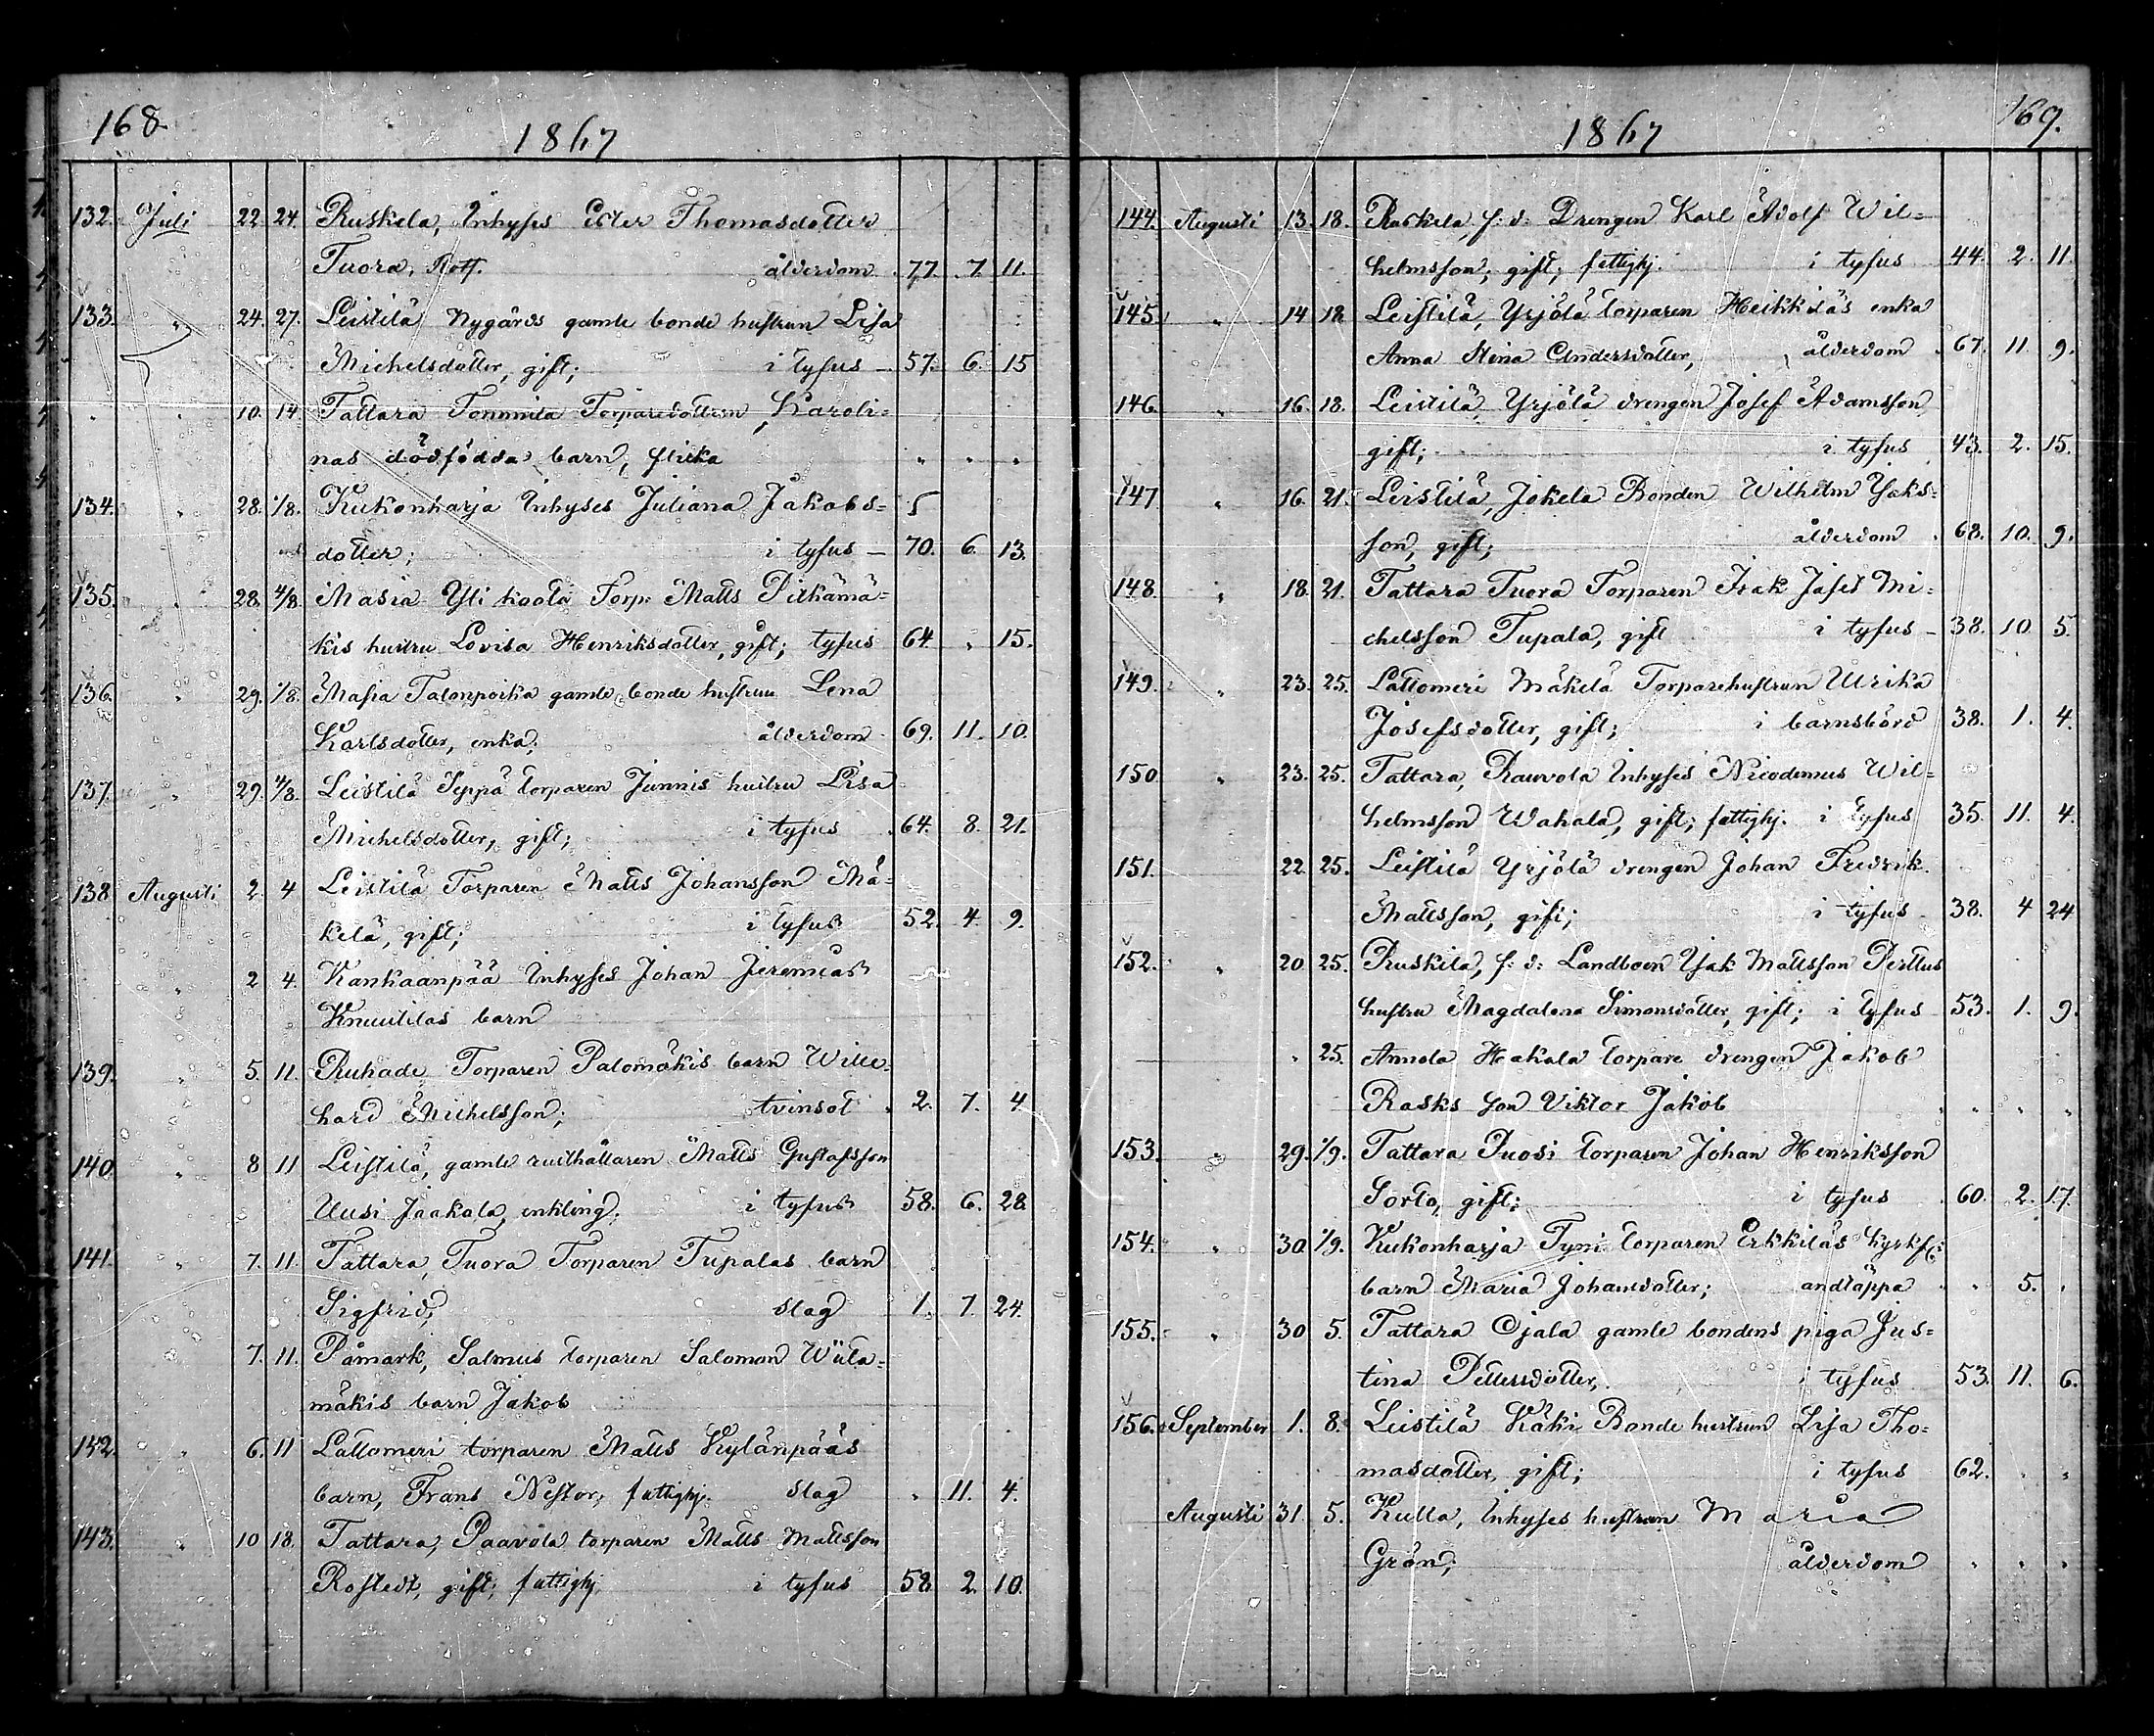 168.
1867
132. Juli 22. 24. Ruskela, Inhyses Ester Thomasdotter
Tuora, Rotf. ålderdom 77. 7. 11.
133. " 24. 27. Leistilä Nygårds gamle bonde hustrun Lisa
Michelsdotter, gift; i tyfus 57. 6. 15
" " 10. 14 Tattara Tommila Torparedottren Karoli=
nas dödfödda barn, flicka " " "
134. " 28. 1/8. Kukonharja Inhyses Juliana Jakobs=
dotter; i tyfus 70. 6. 13.
135. " 28. 4/8. Masia Yli kooti Torp. Matts Pitkämä=
kis hustru Lovisa Henriksdotter, gift; tyfus 64 " 15.
136. " 29. 1/8. Masia Talonpoika gamle bonde hustrun Lena
Karlsdotter, enka; ålderdom 69. 11. 10.
137. " 29. 4/8. Leistilä Seppä torparen Junnis hustru Lisa
Michelsdotter, gift; i tyfus 64. 8. 21.
138 Augusti 2. 4 Leistilä Torparen Matts Johansson Mä=
kelä, gift; i tyfus 52. 4. 9.
" 2 4. Kankaanpää Inhyses Johan Jeremias
Knuutilas barn
139. " 5. 11. Ruhade Torparen Palomäkis barn Wille=
hard Michelsson; tvinsot 2. 7. 4
140. " 8 11 Leistilä, gamle rusthållaren Matts Gustafsson
Uusi Jaakala, enkling. i tyfus 58. 6. 28.
141. " 7. 11. Tattara, Tuora Torparen Tupalas barn
Sigfrid; slag 1. 7. 24.
7. 11. Påmark, Salmus torparen Salomon Wiita=
mäkis barn Jakob
142. " 6. 11 Lattomeri torparen Matts Kylänpääs
barn, Frans Nestor; fattighj. slag " 11. 4.
143. " 10 18. Tattara, Paavola torparen Matts Mattsson
Rostedt, gift; fattighj. i tyfus 58. 2. 10.
169.
1867
144. Augusti 13. 18. Raskela, f. d. Drengen Karl Adolf Wil=
helmsson, gift; fattighj. i tyfus 44. 2. 11.
145. " 14 18 Leistilä, Yrjölä torparen Heikkiläs enka
Anna Stina Andersdotter, ålderdom 67. 11. 9.
146. " 16. 18. Leistilä, Yrjölä drengen Josef Adamsson
gift; i tyfus 43. 2. 15.
147 " 16. 21. Leistilä, Jokela Bonden Wilhelm Isaks=
son, gift; ålderdom 68. 10. 9.
148. " 18. 21. Tattara Tuora Torparen Isak Jafet Mi=
chelsson Tupala, gift i tyfus 38. 10. 5.
149. " 23. 25. Lattomeri Mäkelä Torparehustrun Ulrika
Josefsdotter, gift; i barnsbörd 38. 1. 4.
150 " 23. 25. Tattara, Rauvola Inhyses Nicodemus Wil=
helmsson Wahala, gift; fattighj. i tyfus 35. 11. 4.
151. 22. 25. Leistilä Yrjölä drengen Johan Fredrik
Mattsson, gift; i tyfus 38. 4 24
152. " 20 25. Ruskila, f. d. Landboen Isak Mattsson Perttus
hustru Magdalena Simonsdotter, gift; i tyfus 53. 1. 9.
" 25. Annola Hakala torpare drengen Jakob
Rasks son Viktor Jakob " " "
153. " 29. 1/9. Tattara Puosi torparen Johan Henriksson
Sorto, gift; i tyfus 60. 2. 17.
154. " 30. 1/9. Kukonharja Tyni torparen Erkkiläs
barn Maria Johansdotter; andtäppa " 5. "
155. " 30 5. Tattara Ojala gamle bondens piga Jus=
tina Pettersdotter, i tyfus 53. 11. 6.
156. September 1. 8. Leistilä Käki Bonde hustrun Lisa Tho=
masdotter, gift; i tyfus 62. " "
Augusti 31. 5. Kulla, Inhyses hustrun Maria
Grön; ålderdom " " "